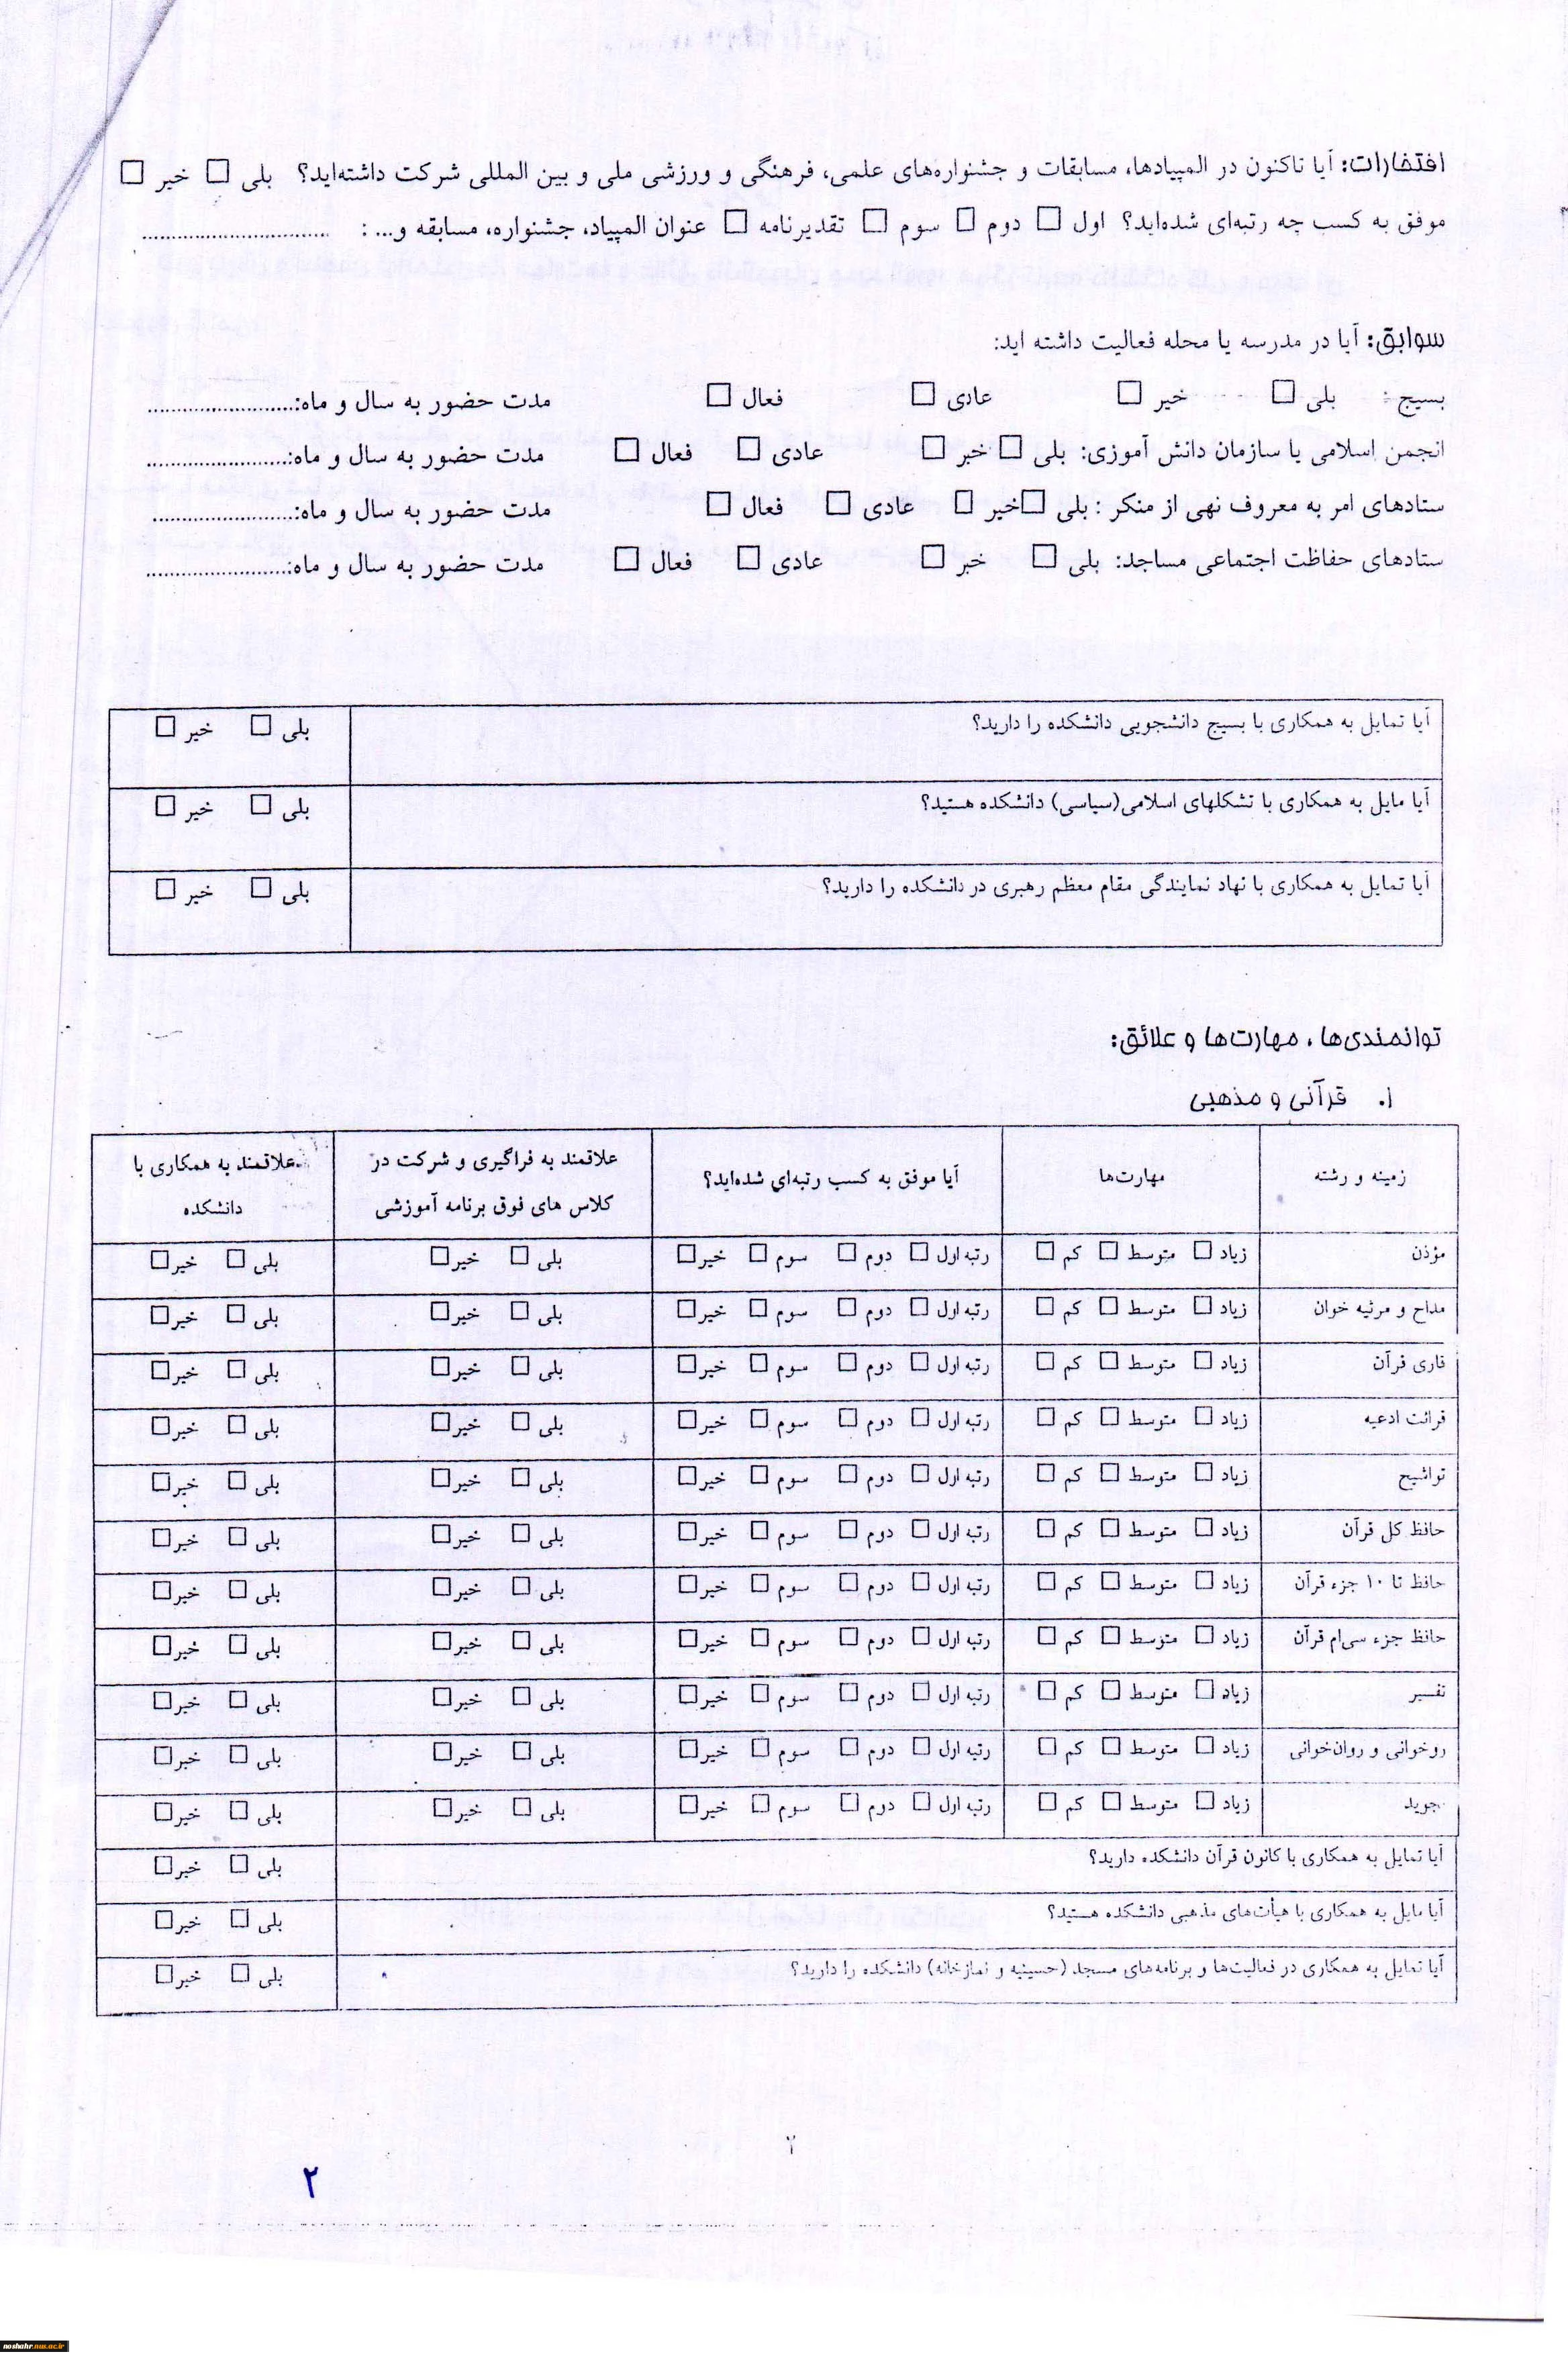 افتخارات: آیا تاکنون در المپیادها، مسابقات و جشنواره‌های علمی، فرهنگی و ورزشی ملی و بین المللی شرکت داشته‌اید؟ بلی □ خیر □
موفق به کسب چه رتبه‌ای شده‌اید؟ اول □ دوم □ سوم □ تقدیرنامه □ عنوان المپیاد، جشنواره، مسابقه و... : ................................
سوابق: آیا در مدرسه یا محله فعالیت داشته اید:
بسیج: بلی □ خیر □ عادی □ فعال □ مدت حضور به سال و ماه:.........................
انجمن اسلامی یا سازمان دانش آموزی: بلی □ خیر □ عادی □ فعال □ مدت حضور به سال و ماه:.........................
ستادهای امر به معروف نهی از منکر : بلی □ خیر □ عادی □ فعال □ مدت حضور به سال و ماه:.........................
ستادهای حفاظت اجتماعی مساجد: بلی □ خیر □ عادی □ فعال □ مدت حضور به سال و ماه:.........................
آیا تمایل به همکاری با بسیج دانشجویی دانشکده را دارید؟ بلی □ خیر □
آیا مایل به همکاری با تشکلهای اسلامی(سیاسی) دانشکده هستید؟ بلی □ خیر □
آیا تمایل به همکاری با نهاد نمایندگی مقام معظم رهبری در دانشکده را دارید؟ بلی □ خیر □
توانمندی‌ها ، مهارت‌ها و علائق:
۱. قرآنی و مذهبی
زمینه و رشته مهارت‌ها آیا موفق به کسب رتبه‌ای شده‌اید؟ علاقمند به فراگیری و شرکت در کلاس های فوق برنامه آموزشی علاقمند به همکاری با دانشکده
مؤذن زیاد □ متوسط □ کم □ رتبه اول □ دوم □ سوم □ خیر □ بلی □ خیر □ بلی □ خیر □
مداح و مرثیه خوان زیاد □ متوسط □ کم □ رتبه اول □ دوم □ سوم □ خیر □ بلی □ خیر □ بلی □ خیر □
قاری قرآن زیاد □ متوسط □ کم □ رتبه اول □ دوم □ سوم □ خیر □ بلی □ خیر □ بلی □ خیر □
قرائت ادعیه زیاد □ متوسط □ کم □ رتبه اول □ دوم □ سوم □ خیر □ بلی □ خیر □ بلی □ خیر □
تواشیح زیاد □ متوسط □ کم □ رتبه اول □ دوم □ سوم □ خیر □ بلی □ خیر □ بلی □ خیر □
حافظ کل قرآن زیاد □ متوسط □ کم □ رتبه اول □ دوم □ سوم □ خیر □ بلی □ خیر □ بلی □ خیر □
حافظ تا ۱۰ جزء قرآن زیاد □ متوسط □ کم □ رتبه اول □ دوم □ سوم □ خیر □ بلی □ خیر □ بلی □ خیر □
حافظ جزء سی‌ام قرآن زیاد □ متوسط □ کم □ رتبه اول □ دوم □ سوم □ خیر □ بلی □ خیر □ بلی □ خیر □
تفسیر زیاد □ متوسط □ کم □ رتبه اول □ دوم □ سوم □ خیر □ بلی □ خیر □ بلی □ خیر □
روخوانی و روان‌خوانی زیاد □ متوسط □ کم □ رتبه اول □ دوم □ سوم □ خیر □ بلی □ خیر □ بلی □ خیر □
تجوید زیاد □ متوسط □ کم □ رتبه اول □ دوم □ سوم □ خیر □ بلی □ خیر □ بلی □ خیر □
آیا تمایل به همکاری با کانون قرآن دانشکده دارید؟ بلی □ خیر □
آیا مایل به همکاری با هیأت‌های مذهبی دانشکده هستید؟ بلی □ خیر □
آیا تمایل به همکاری در فعالیت‌ها و برنامه‌های مسجد (حسینیه و نمازخانه) دانشکده را دارید؟ بلی □ خیر □
۲
۲
noshahr.nus.ac.ir